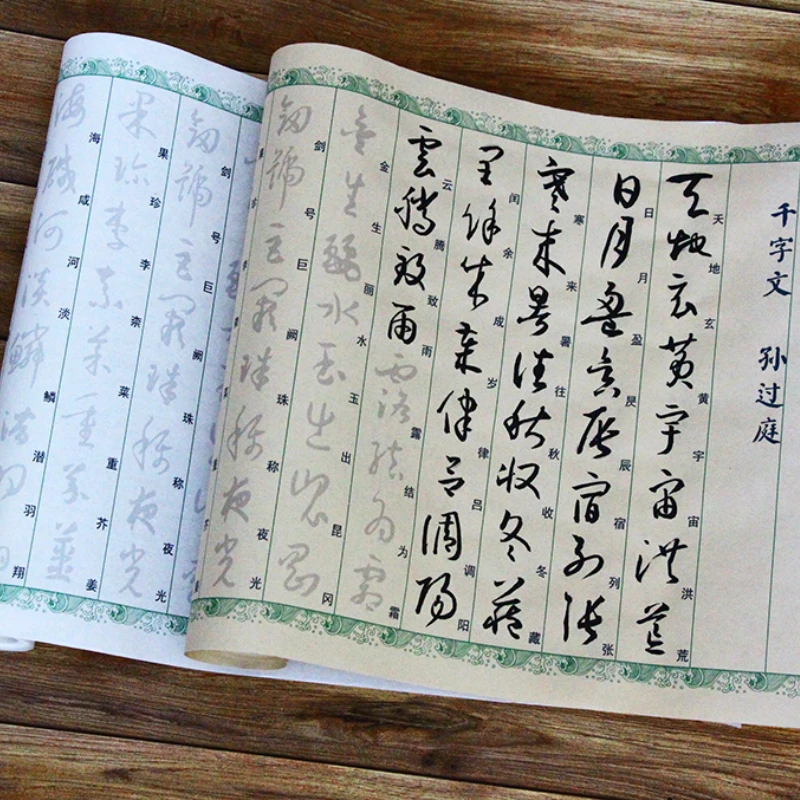 千字文 孙过庭
天地玄黄宇宙洪荒
日月盈昃辰宿列张
寒来暑往秋收冬藏
闰余成岁律吕调阳
云腾致雨露结为霜
金生丽水玉出昆冈
剑号巨阙珠称夜光
剑号巨阙珠称夜光
果珍李柰菜重芥姜
海咸河淡鳞潜羽翔